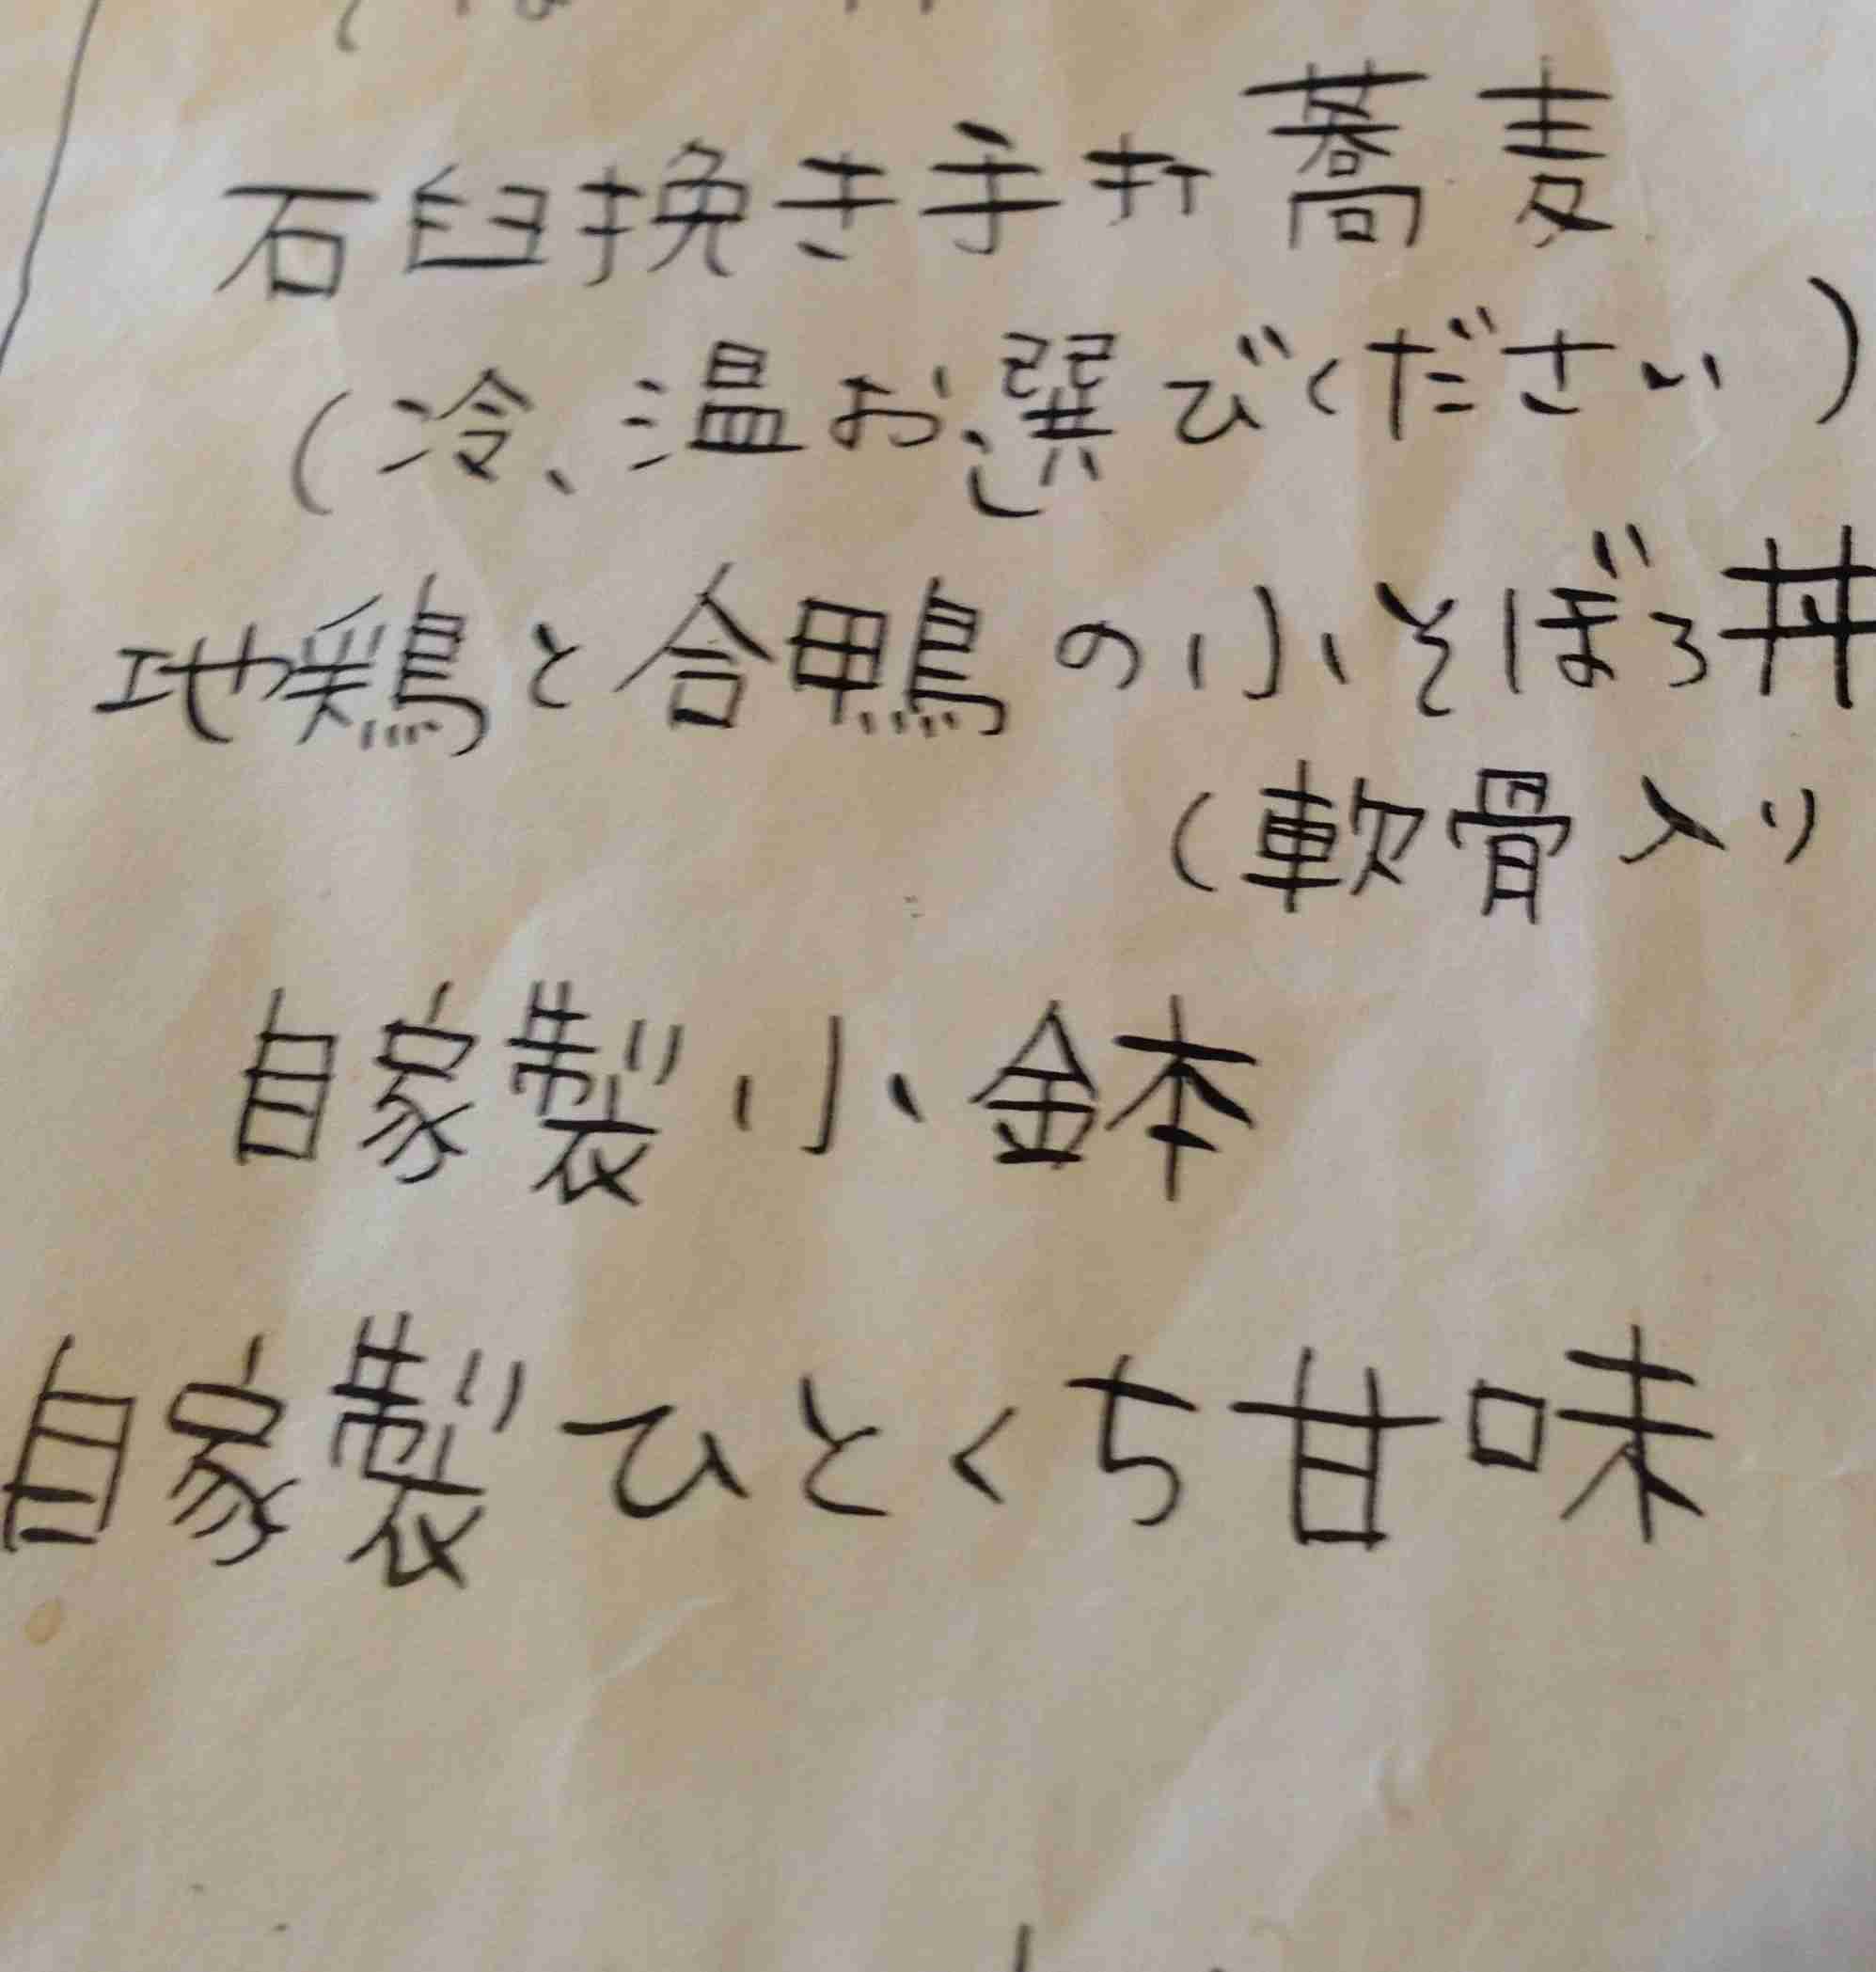 石臼挽き手打蕎麦
(冷、温お選びください)
地鶏と合鴨の小そぼろ丼
(軟骨入り
自家製小鉢
自家製ひとくち甘味